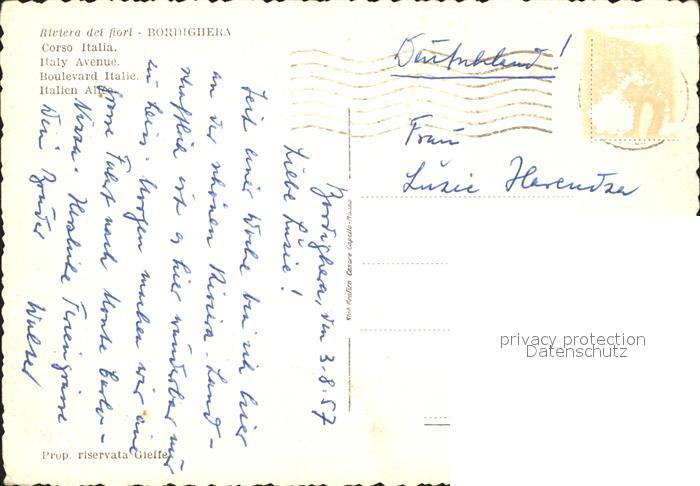 Riviera dei fiori - BORDIGHERA
Corso Italia.
Italy Avenue.
Boulevard Italie.
Italien Allee.
Deutschland!
Frau
Lüzie
Bordighera, den 3.8.57
Liebe Lüzie!
Seit einer Woche bin ich hier
an der schönen Riviera. Land-
schaftlich ist es hier wunderbar nur
zu heiss. Morgen machen wir eine
grosse Fahrt nach Monte Carlo -
Nizza. Herzliche Feriengrüsse
Dein Bruder Walter
Prop. riservata Gieffe
privacy protection
Datenschutz